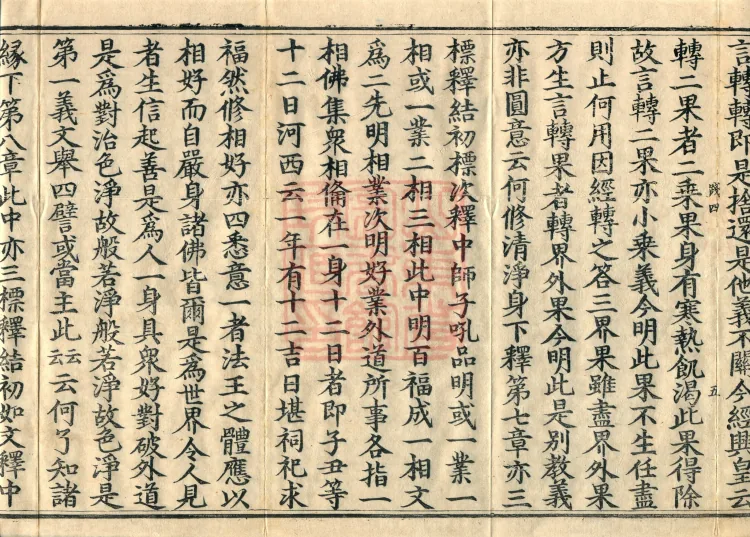 言轉轉即是捨還是他義不關今經興皇云
轉二果者二乘果身有寒熱飢渴此果得除
故言轉二果亦小乘義今明此果不生任盡
則止何用因經轉之答三界果雖盡界外果
方生言轉果者轉界外果今明此是別教義
亦非圓意云何修清淨身下釋第七章亦三
標釋結初標次釋中師子吼品明或一業一
相或一業二相三相此中明百福成一相文
爲二先明相業次明好業外道所事各指一
相佛集衆相備在一身十二日者即子丑等
十二日河西云一年有十二吉日堪祠祀求
福然修相好亦四悉意一者法王之體應以
相好而自嚴身諸佛皆爾是爲世界令人見
者生信起善是爲人一身具衆好對破外道
是爲對治色淨故般若淨般若淨故色淨是
第一義文舉四譬或當主此云云云何了知諸
緣下第八章此中亦三標釋結初如文釋中
五